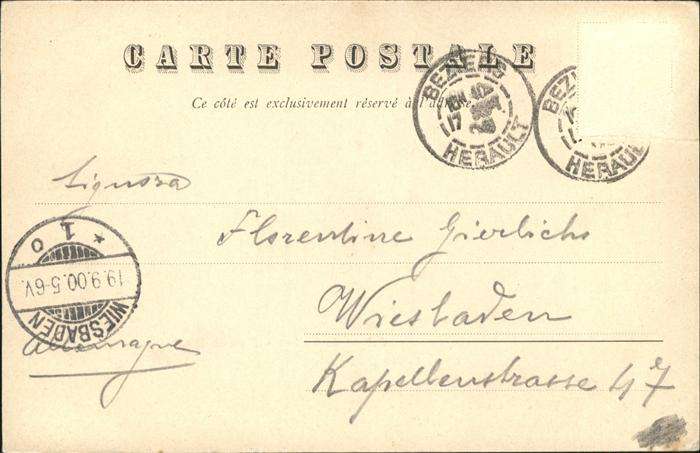 CARTE POSTALE
Ce côté est exclusivement réservé à l'adresse.
BEZIERS
17
HERAULT
BEZI
HERAULT
Florentine Gierlichs
* 1 o
19.9.00.5-6V.
WIESBADEN
Wiesbaden
Allemagne
Kapellenstrasse 47